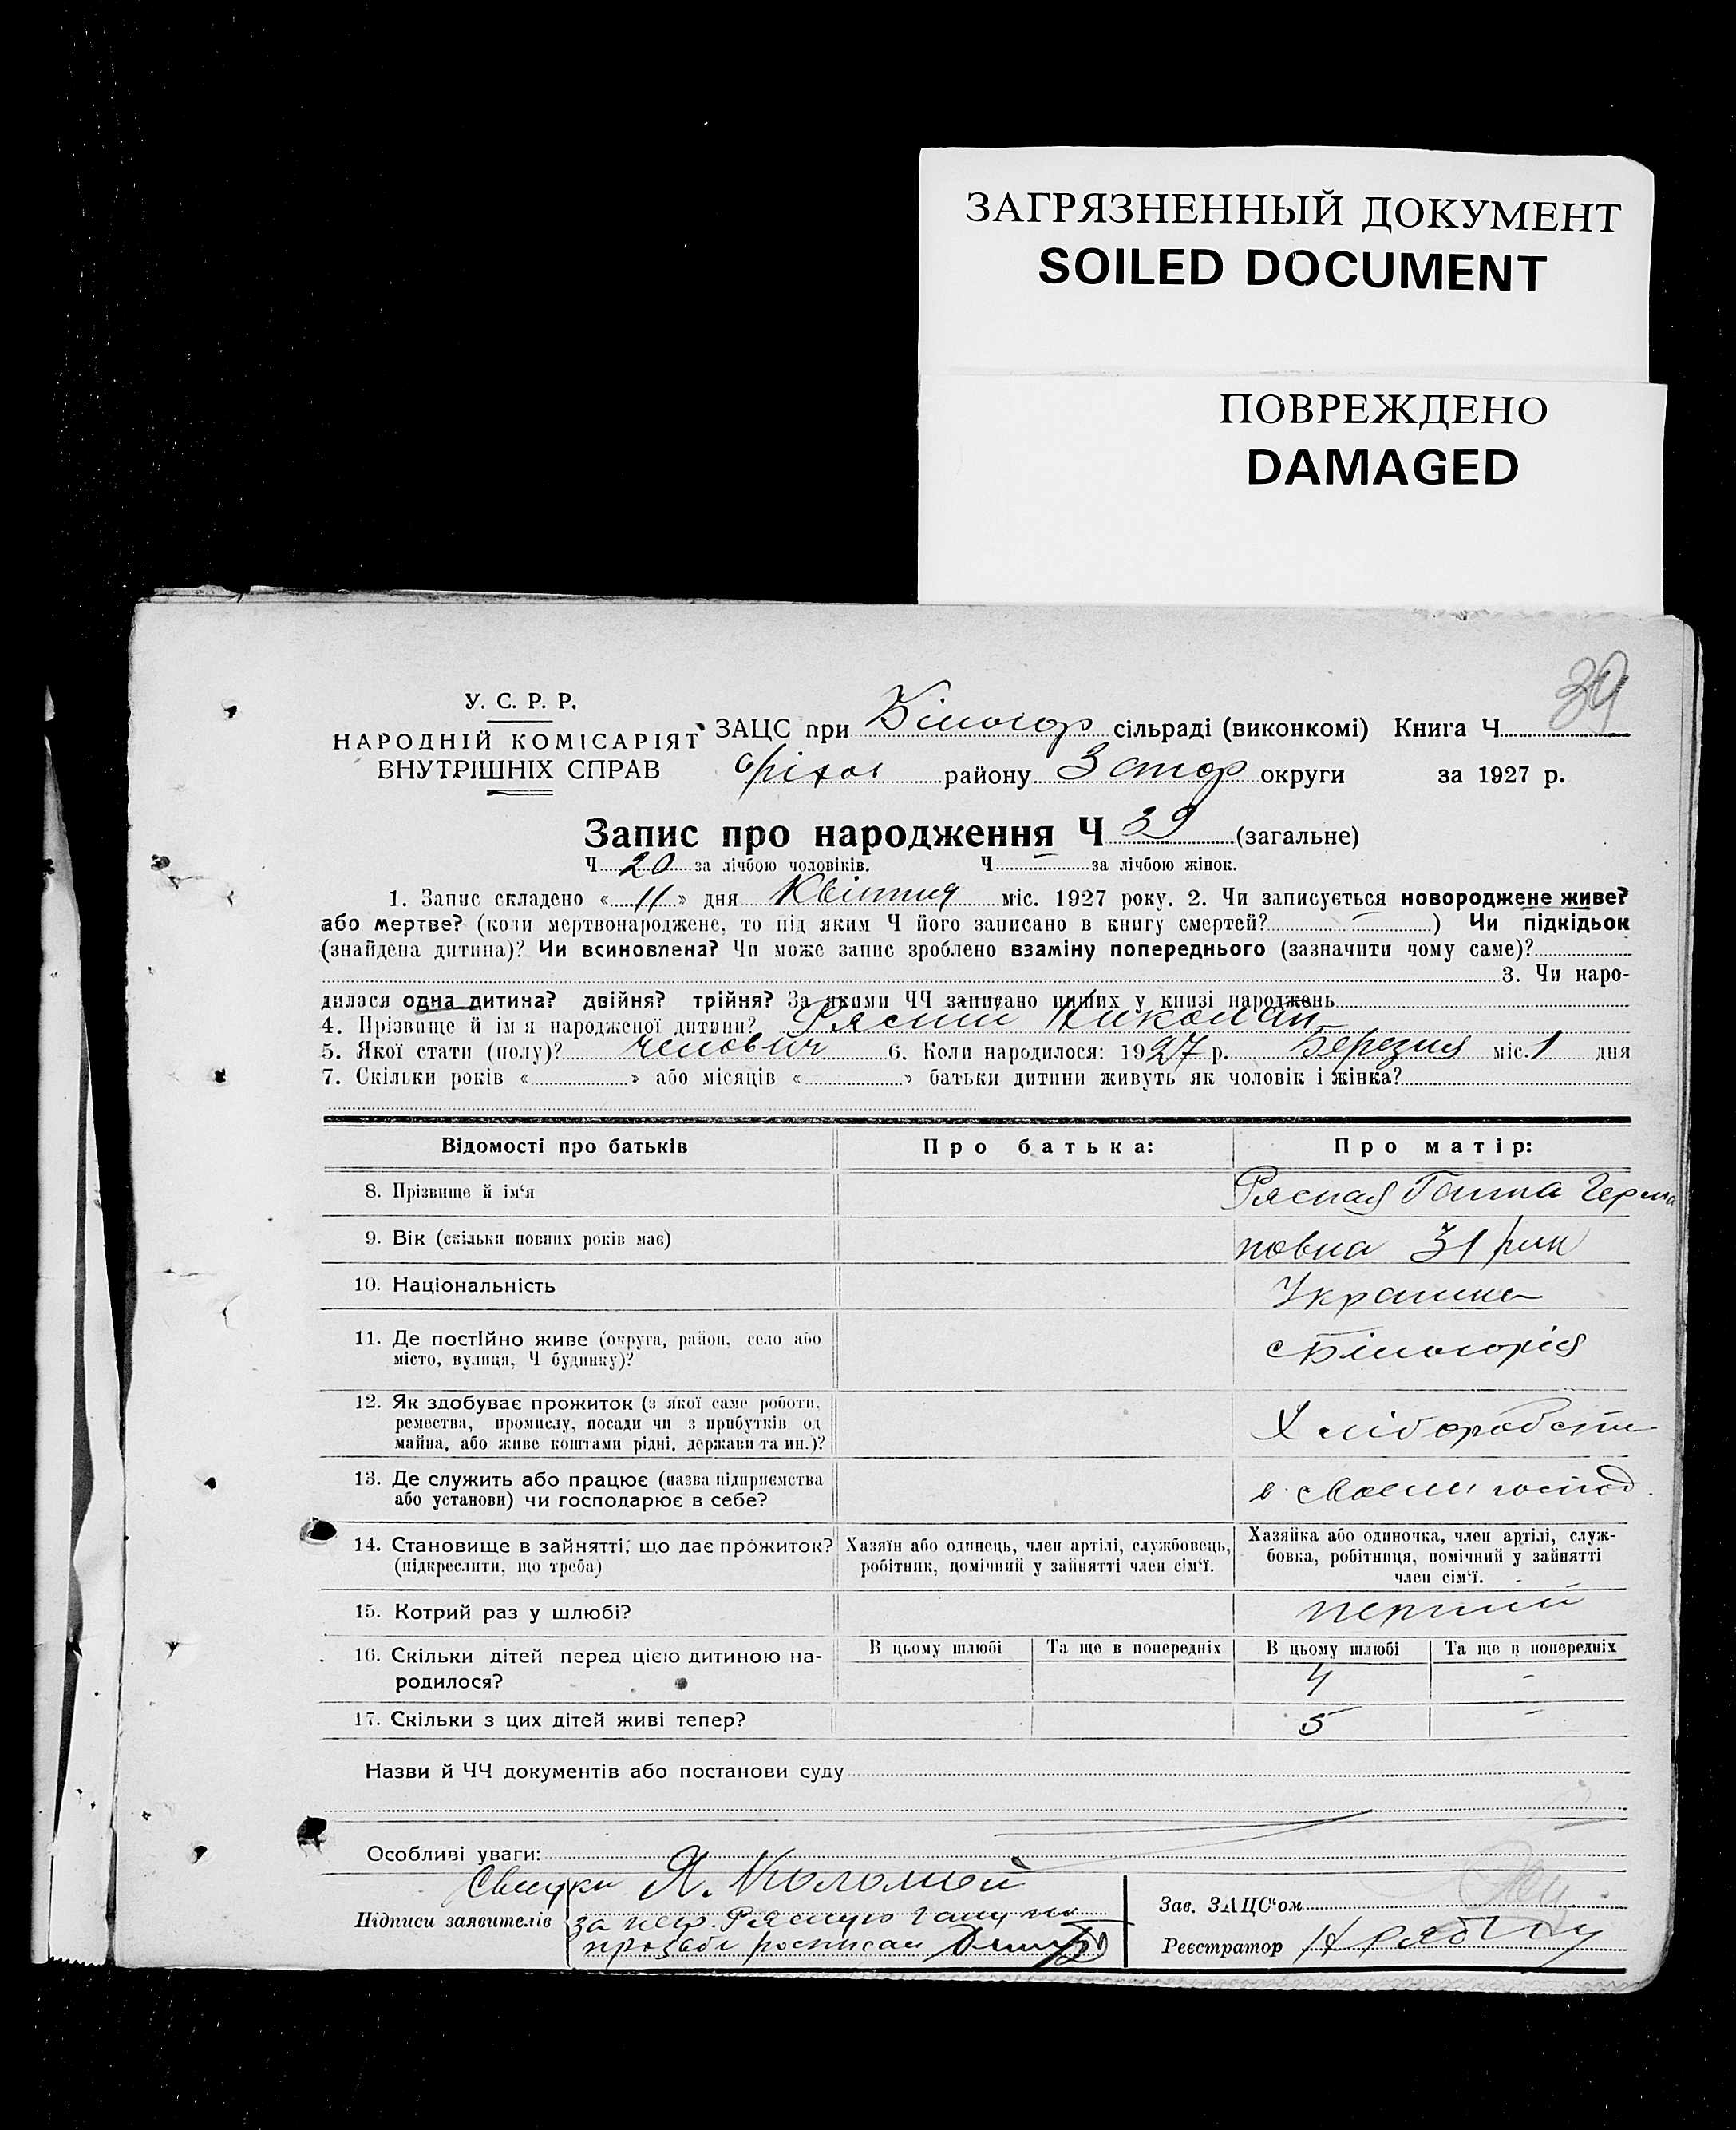 ЗАГРЯЗНЕННЫЙ ДОКУМЕНТ
SOILED DOCUMENT
ПОВРЕЖДЕНО
DAMAGED
39
У. С. Р. Р.
НАРОДНІЙ КОМІСАРІЯТ
ВНУТРІШНІХ СПРАВ
ЗАЦС при Білогор сільраді (виконкомі) Книга Ч
Оріхов району Запор округи за 1927 р.
Запис про народження Ч 39 (загальне)
Ч 20 за лічбою чоловіків. Ч — за лічбою жінок.
1. Запис складено « 11 » дня Квітня міс. 1927 року. 2. Чи записується новороджене живе?
або мертве? (коли мертвонароджене, то під яким Ч його записано в книгу смертей? — ) Чи підкідьок
(знайдена дитина)? Чи всиновлена? Чи може запис зроблено взаміну попереднього (зазначити чому саме)?
3. Чи наро-
дилася одна дитина? двійня? трійня? За якими ЧЧ записано инших у книзі народжень
4. Прізвище й ім я народженої дитини? Рясний Николай
5. Якої стати (полу)? чолович 6. Коли народилося: 1927 р. Березня міс. 1 дня
7. Скільки років « » або місяців « » батьки дитини живуть як чоловік і жінка?
Відомості про батьків Про батька: Про матір:
8. Прізвище й ім‘я Рясная Ганна Герма
9. Вік (скільки повних років має) новна 31 рик
10. Національність Украинка
11. Де постійно живе (округа, район, село або
місто, вулиця, Ч будинку)? с Білогорія
12. Як здобуває прожиток (з якої саме роботи,
ремества, промислу, посади чи з прибутків од
майна, або живе коштами рідні, держави та ин.)? Хліборобств
13. Де служить або працює (назва підприємства
або установи) чи господарює в себе? в своем господ.
14. Становище в зайнятті, що дає прожиток?
(підкреслити, що треба)
Хазяїн або одинець, член артілі, службовець,
робітник, помічний у зайнятті член сім‘ї.
Хазяйка або одиночка, член артілі, служ-
бовка, робітниця, помічний у зайнятті
член сім‘ї.
15. Котрий раз у шлюбі? перший
16. Скільки дітей перед цією дитиною на-
родилося?
В цьому шлюбі Та ще в попередніх В цьому шлюбі Та ще в попередніх
4 -
17. Скільки з цих дітей живі тепер? 5 -
Назви й ЧЧ документів або постанови суду
Особливі уваги:
Свидки Я. Коломой
Підписи заявителів за негр. Рясную Ганну по
прозьбі росписал
Зав. ЗАЦС‘ом
Реєстратор